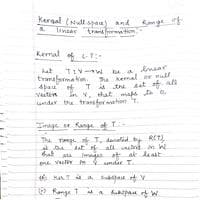 Kernal (Null space) and Range of
a linear transformation.
Kernal of L.T:-
Let T: V→W be a linear
transformation. The kernal or null
space of T is the set of all
vectors in V, that maps to 0,
under the transformation T.
Image or Range of T:-
The range of T, denoted by R(T),
is the set of all vectors in W
that are images of at least
one vector in V under T.
Ker T is a subspace of V
Range T is a subspace of W